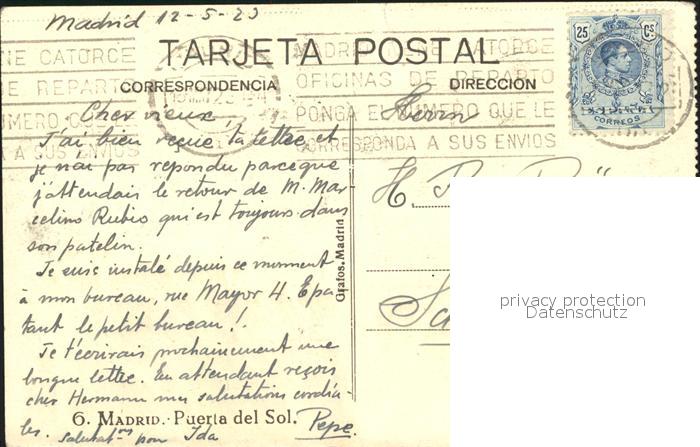 Madrid 12-5-23
25 Cs
TARJETA POSTAL
NE CATORCE MADRID CATORCE
DE REPARTO OFICINAS DE REPARTO
CORRESPONDENCIA DIRECCIÓN
PONGA EL NUMERO QUE LE
A SUS ENVIOS CORRESPONDA A SUS ENVIOS
CORREOS
Cher vieux,
J'ai bien reçue ta lettee, et
je n'ai pas repondu parceque
j'attendais le retour de M. Mar
celino Rubio qui est toujours dans
son patelin.
Je suis instalé depuis ce moment
à mon bureau, rue Mayor 4. Epa
tant le petit bureau!.
Je t'écrirais prochainement une
longue lettee. En attendant reçois
cher Hermann mes salutations cordia
les.
6. MADRID. - Puerta del Sol.
Salutat ons pour Ida
Pepe.
Grafos. Madrid
Herrn
H.
privacy protection
Datenschutz